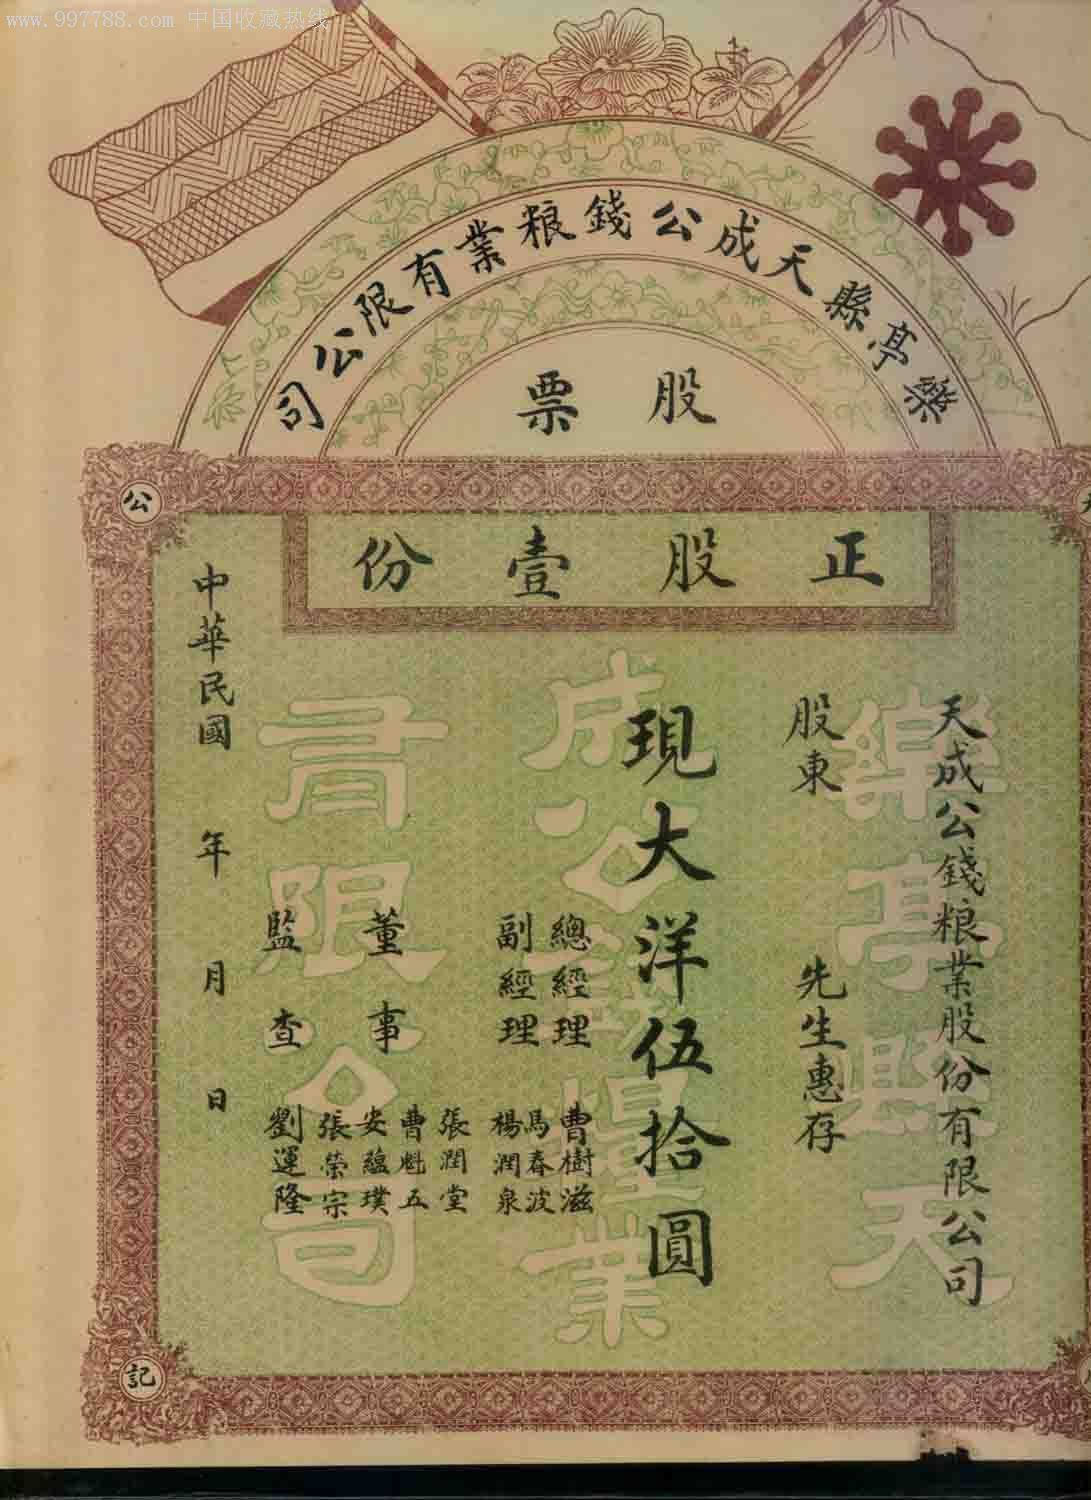 www.997788.com 中国收藏热线
樂亭縣天成公錢粮業有限公司
股票
正股壹份
公
記
天成公錢粮業股份有限公司
股東 先生惠存
現大洋伍拾圓
總經理 曹樹滋
副經理 馬春波
楊潤泉
董事 張潤堂
曹魁五
安蘊璞
監查 張榮宗
劉運隆
中華民國 年 月 日
樂亭縣天
成公錢糧業
有限公司